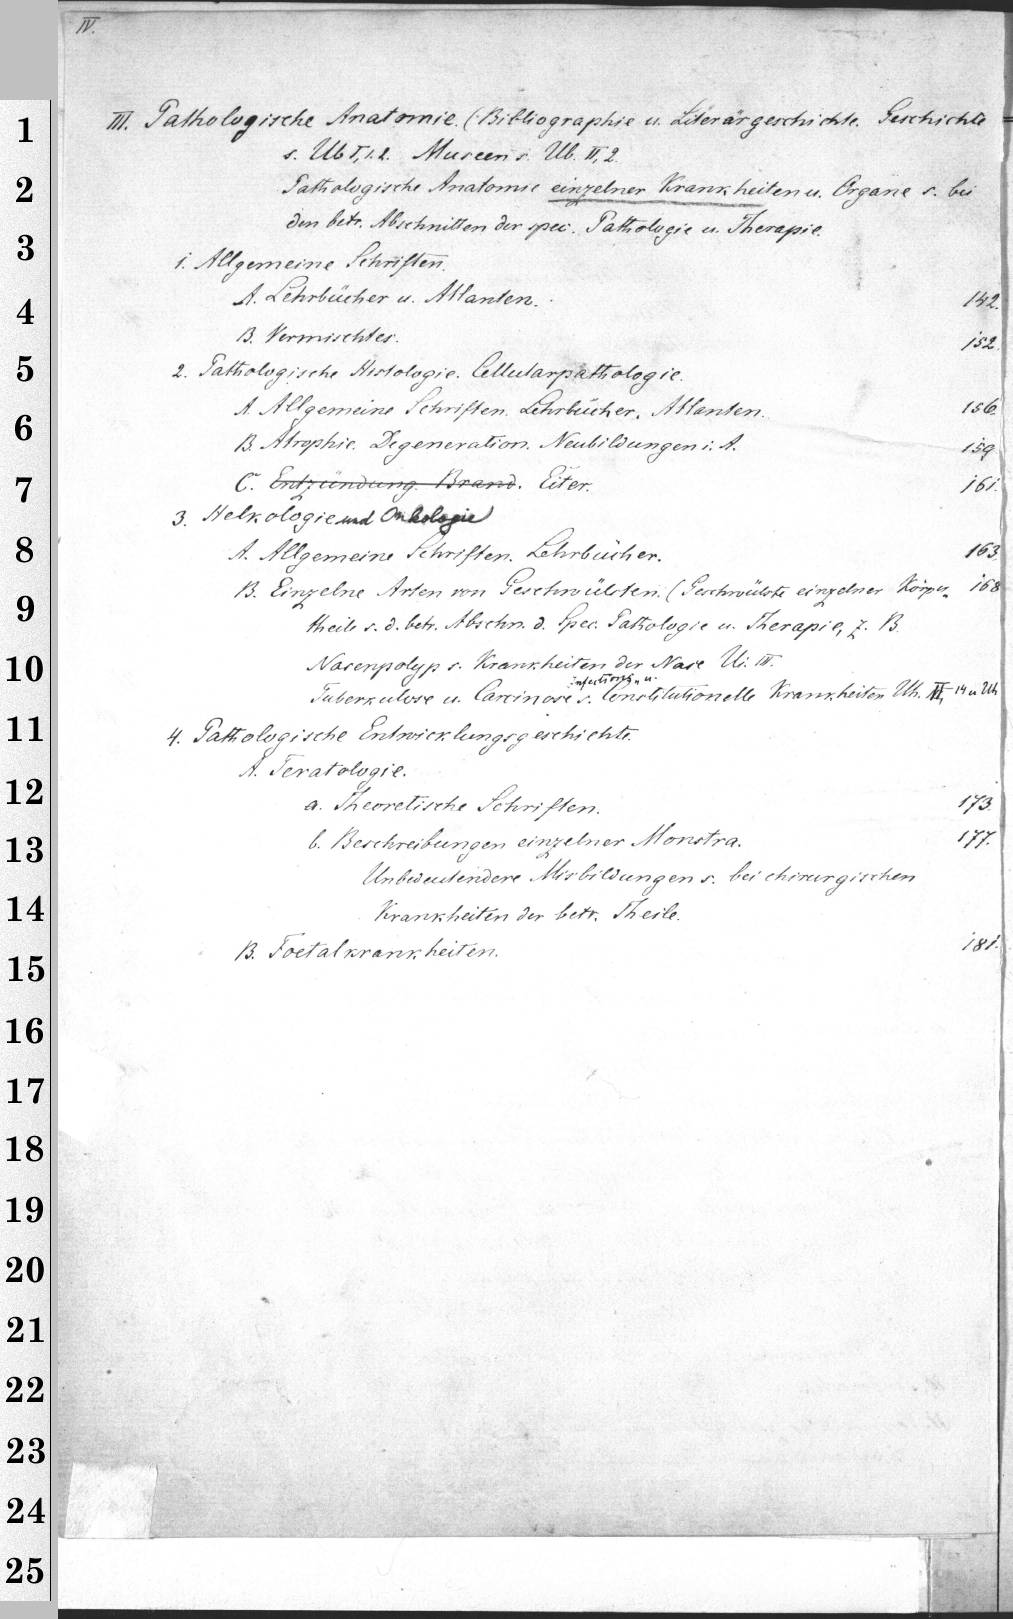 IV.
III. Pathologische Anatomie. (Bibliographie u. Literärgeschichte. Geschichte
s. Ub I, 1.2. Museen s. Ub. II, 2.
Pathologische Anatomie einzelner Krankheiten u. Organe s. bei
den betr. Abschnitten der spec. Pathologie u. Therapie.
1. Allgemeine Schriften.
A. Lehrbücher u. Atlanten. 142.
B. Vermischtes. 152.
2. Pathologische Histologie. Cellularpathologie.
A. Allgemeine Schriften. Lehrbücher, Atlanten. 156.
B. Atrophie. Degeneration. Neubildungen i. A. 159.
C. Entzündung. Brand. Eiter. 161.
3. Helkologie und Onkologie
A. Allgemeine Schriften. Lehrbücher. 163.
B. Einzelne Arten von Geschwülsten. (Geschwülste einzelner Körper- 168
theile s. d. betr. Abschn. d. Spec. Pathologie u. Therapie, z. B.
Nasenpolyp s. Krankheiten der Nase Ui. III.
infections- u.
Tuberkulose u. Carcinose s. Constitutionelle Krankheiten Uh. III, 14 u Uh
4. Pathologische Entwicklungsgeschichte.
A. Teratologie.
a. Theoretische Schriften. 173.
b. Beschreibungen einzelner Monstra. 177.
Unbedeutendere Misbildungen s. bei chirurgischen
Krankheiten der betr. Theile.
B. Foetalkrankheiten. 181.
1
2
3
4
5
6
7
8
9
10
11
12
13
14
15
16
17
18
19
20
21
22
23
24
25